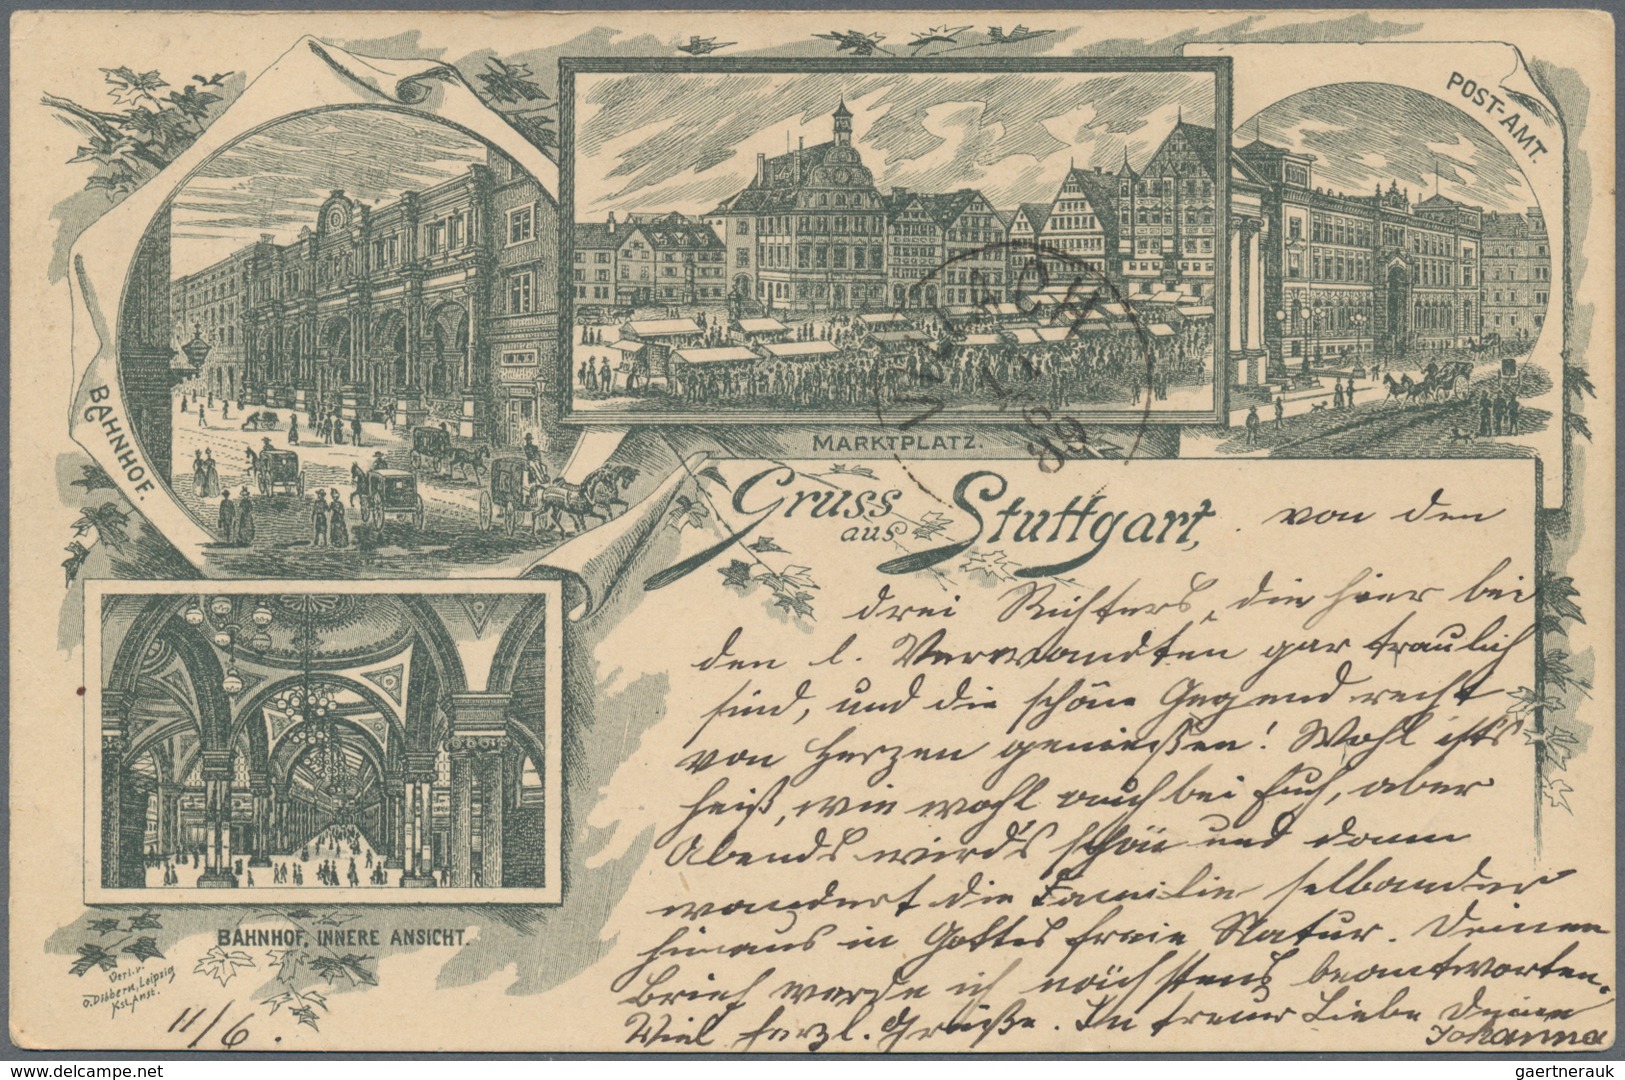 POST-AMT.
BAHNHOF.
MARKTPLATZ.
VILLACH
89
Gruss
aus Stuttgart, von den
drei Richters, die hier bei
den l. Verwandten gar traulich
sind, und die schöne Gegend recht
von Herzen genießen! Wohl ists
heiß, wie wohl auch bei Euch, aber
Abends wird's schön und dann
wandert die Familie selbander
hinaus in Gottes freie Natur. Deinen
Brief werde ich nächstens beantworten.
Viel herzl. Grüße. In treuer Liebe Deine
Johanna
BAHNHOF, INNERE ANSICHT.
Verl. v.
O. Dobbern, Leipzig
Kst. Anst.
11/6.
oldthing.net
gaertnerauk